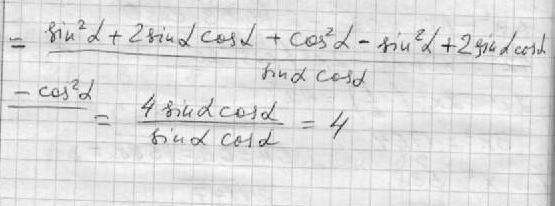 = sin²α + 2sinα cosα + cos²α - sin²α + 2sinα cosα
sinα cosα
- cos²α = 4 sinα cosα / sinα cosα = 4